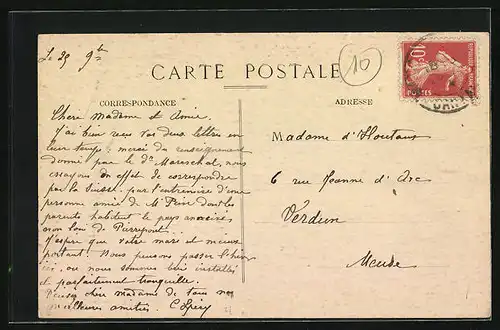 Le 25 9bre
10
CARTE POSTALE
CORRESPONDANCE
ADRESSE
POSTES
10c
Chère Madame et Amie
J'ai bien reçu vos deux lettres en
leur temps & merci du renseignement
donné par le Dr Mareschal, nous
essayons en effet de correspondre
par la Suisse par l'entremise d'une
personne amie de Mr dont les
parents habitent le pays
non loin de Pierrepont.
J'espère que votre mari est mieux
portant. Nous pensons passer l'hiver
ici, où nous sommes bien installés
et parfaitement tranquilles.
chère madame de tous nos
meilleures amitiés.
Madame d'Houtaut
6 rue Jeanne d'Arc
Verdun
Meuse